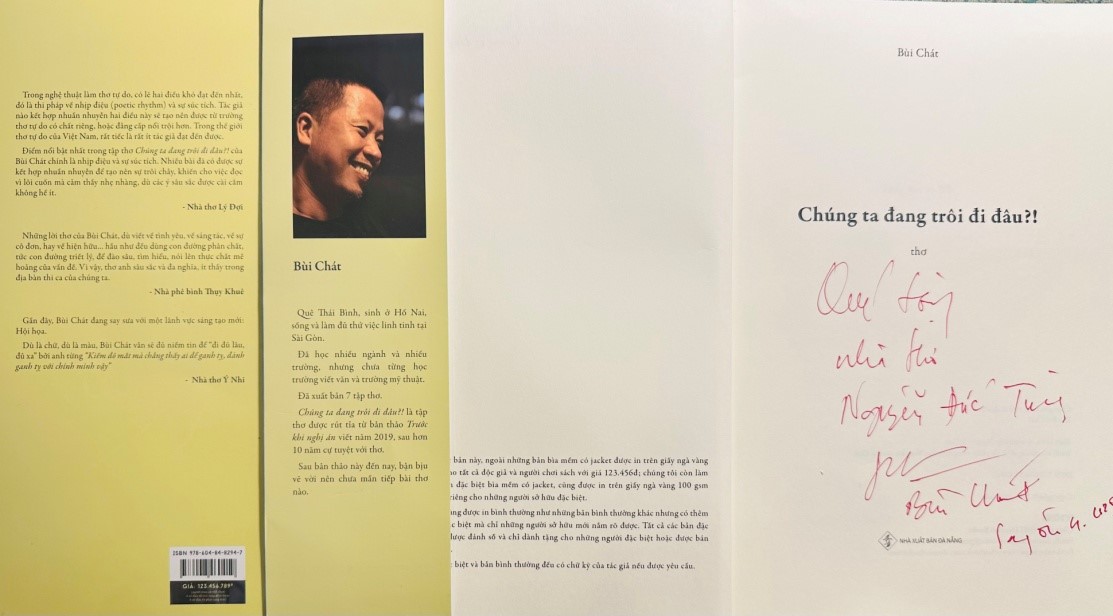 Trong nghệ thuật làm thơ tự do, có lẽ hai điều khó đạt đến nhất,
đó là thi pháp về nhịp điệu (poetic rhythm) và sự súc tích. Tác giả
nào kết hợp nhuần nhuyễn hai điều này sẽ tạo nên được từ trường
thơ tự do có chất riêng, hoặc đẳng cấp nổi trội hơn. Trong thế giới
thơ tự do của Việt Nam, rất tiếc là rất ít tác giả đạt đến được.
Điểm nổi bật nhất trong tập thơ Chúng ta đang trôi đi đâu?! của
Bùi Chát chính là nhịp điệu và sự súc tích. Nhiều bài đã có được sự
kết hợp nhuần nhuyễn để tạo nên sự trôi chảy, khiến cho việc đọc
vì lôi cuốn mà cảm thấy nhẹ nhàng, dù các ý sâu sắc được cài cắm
không hề ít.
- Nhà thơ Lý Đợi
Những lời thơ của Bùi Chát, dù viết về tình yêu, về sáng tác, về sự
cô đơn, hay về hiện hữu... hầu như đều dùng con đường phản chất,
tức con đường triết lý, để đào sâu, tìm hiểu, nói lên thực chất mê
hoảng của vấn đề. Vì vậy, thơ anh sâu sắc và đa nghĩa, ít thấy trong
địa bàn thi ca của chúng ta.
- Nhà phê bình Thụy Khuê
Gần đây, Bùi Chát đang say sưa với một lãnh vực sáng tạo mới:
Hội họa.
Dù là chữ, dù là màu, Bùi Chát vẫn sẽ đủ niềm tin để "đi đủ lâu,
đủ xa" bởi anh từng "Kiếm đỏ mắt mà chẳng thấy ai để ganh tỵ, đành
ganh tỵ với chính mình vậy"
- Nhà thơ Ý Nhi
ISBN 978-604-84-8294-7
GIÁ: 123.456.789đ
Bùi Chát
Quê Thái Bình, sinh ở Hố Nai,
sống và làm đủ thứ việc linh tinh tại
Sài Gòn.
Đã học nhiều ngành và nhiều
trường, nhưng chưa từng học
trường viết văn và trường mỹ thuật.
Đã xuất bản 7 tập thơ.
Chúng ta đang trôi đi đâu?! là tập
thơ được rút tỉa từ bản thảo Trước
khi nghị án viết năm 2019, sau hơn
10 năm cự tuyệt với thơ.
Sau bản thảo này đến nay, bận bịu
vẽ vời nên chưa mần tiếp bài thơ
nào.
bản này, ngoài những bản bìa mềm có jacket được in trên giấy ngà vàng
o tất cả độc giả và người chơi sách với giá 123.456đ; chúng tôi còn làm
đặc biệt bìa mềm có jacket, cũng được in trên giấy ngà vàng 100 gsm
riêng cho những người sở hữu đặc biệt.
ng được in bình thường như những bản bình thường khác nhưng có thêm
c biệt mà chỉ những người sở hữu mới nắm rõ được. Tất cả các bản đặc
được đánh số và chỉ dành tặng cho những người đặc biệt hoặc được bán
biệt và bản bình thường đều có chữ ký của tác giả nếu được yêu cầu.
Bùi Chát
Chúng ta đang trôi đi đâu?!
thơ
Quý tặng
nhà thơ
Nguyễn Đức Tùng
Bùi Chát
NHÀ XUẤT BẢN ĐÀ NẴNG